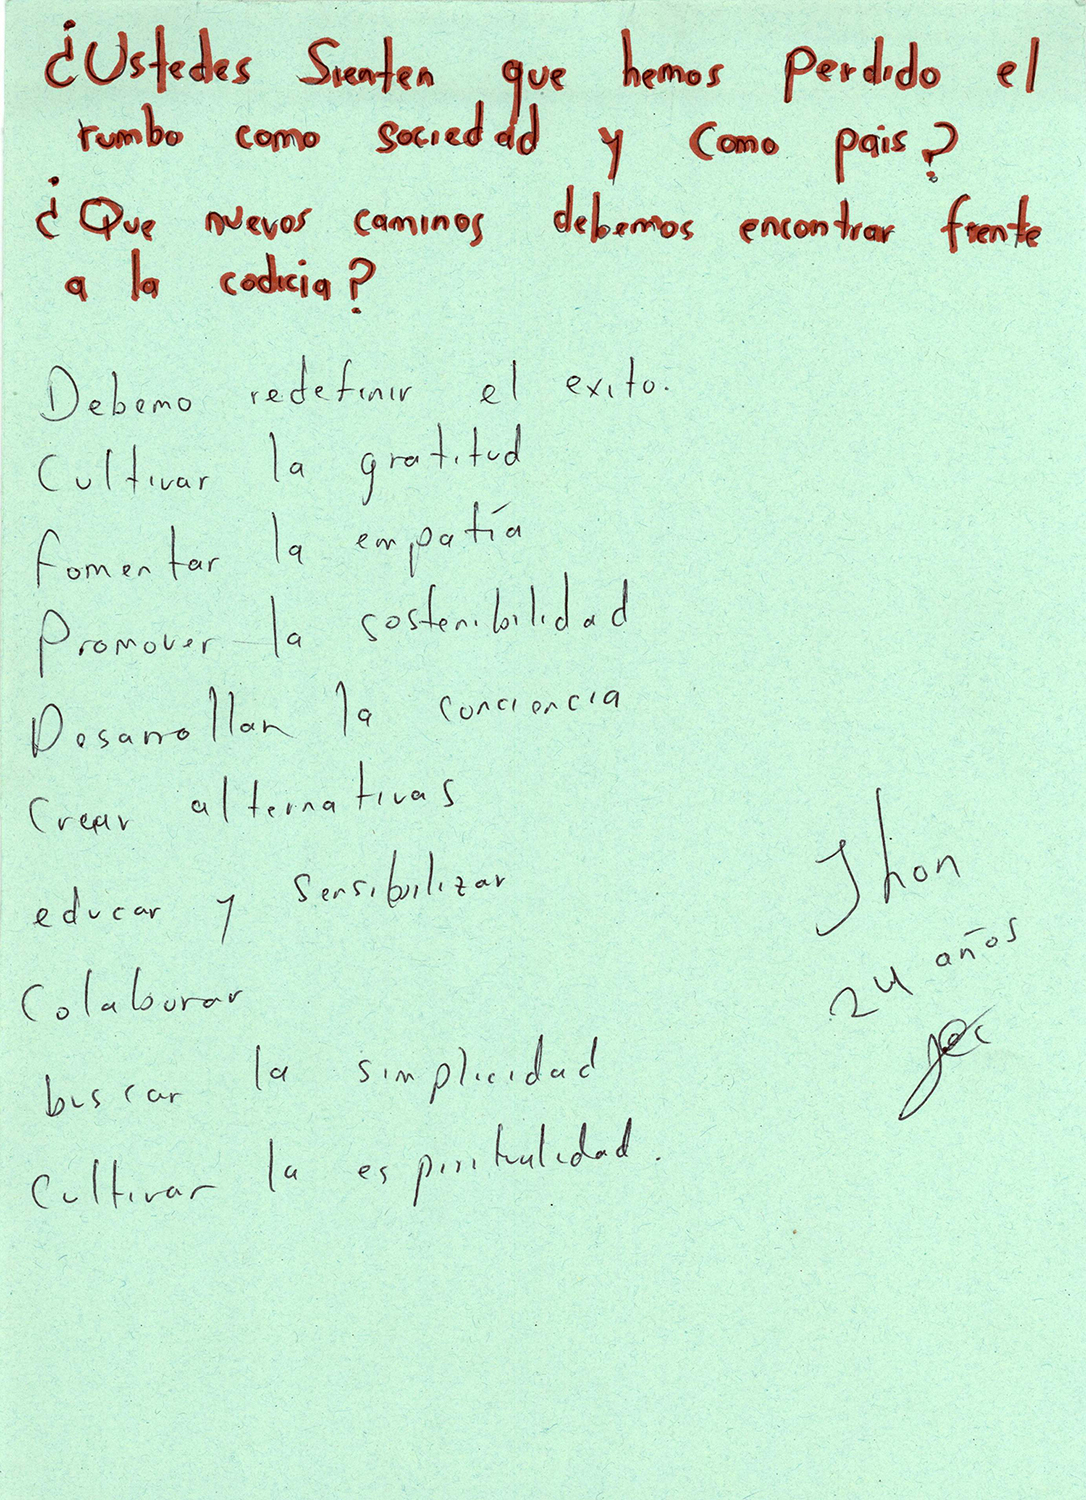 ¿Ustedes Sienten que hemos perdido el
rumbo como sociedad y como pais?
¿Que nuevos caminos debemos encontrar frente
a la codicia?
Debemo redefinir el exito.
Cultivar la gratitud
fomentar la empatía
Promover la sostenibilidad
Desarrollar la conciencia
Crear alternativas
educar y sensibilizar
Colaborar
buscar la simplicidad
Cultivar la espiritualidad.
Jhon
24 años